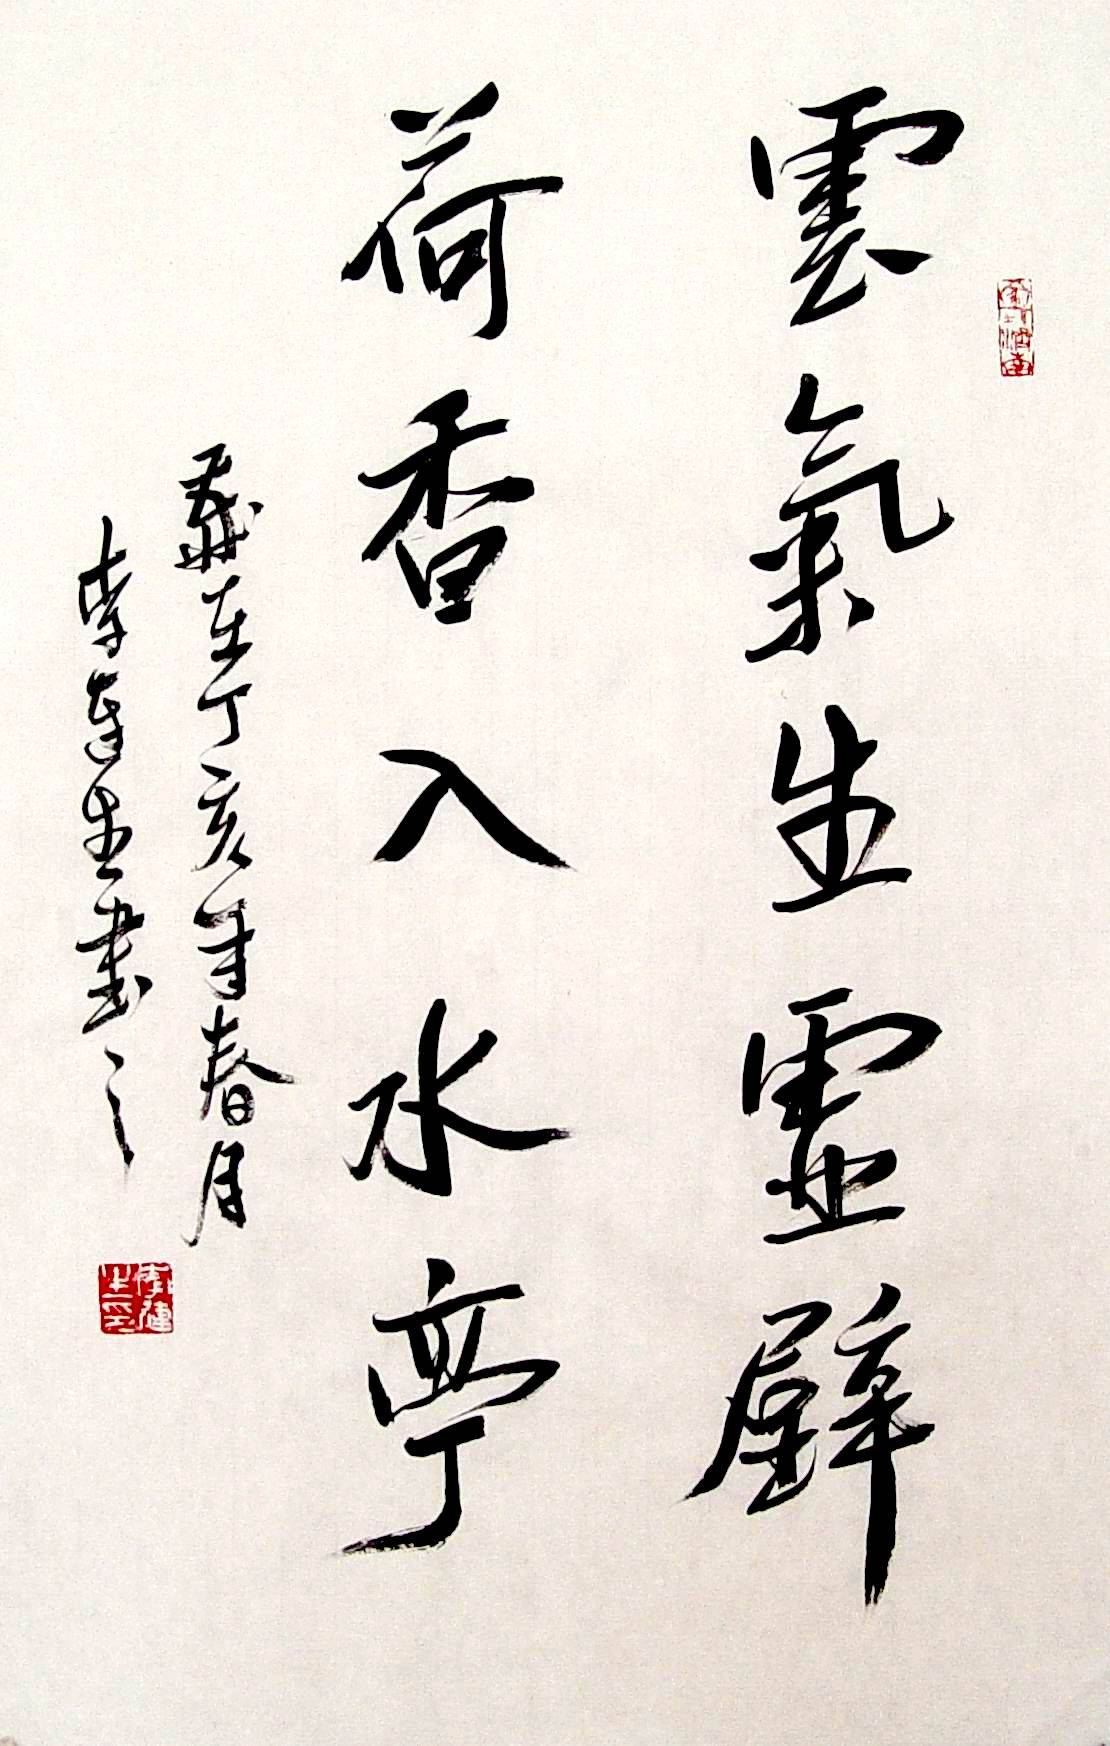 雲氣生靈壁
荷香入水亭
歲在丁亥年春月
李建生書之
李建生印